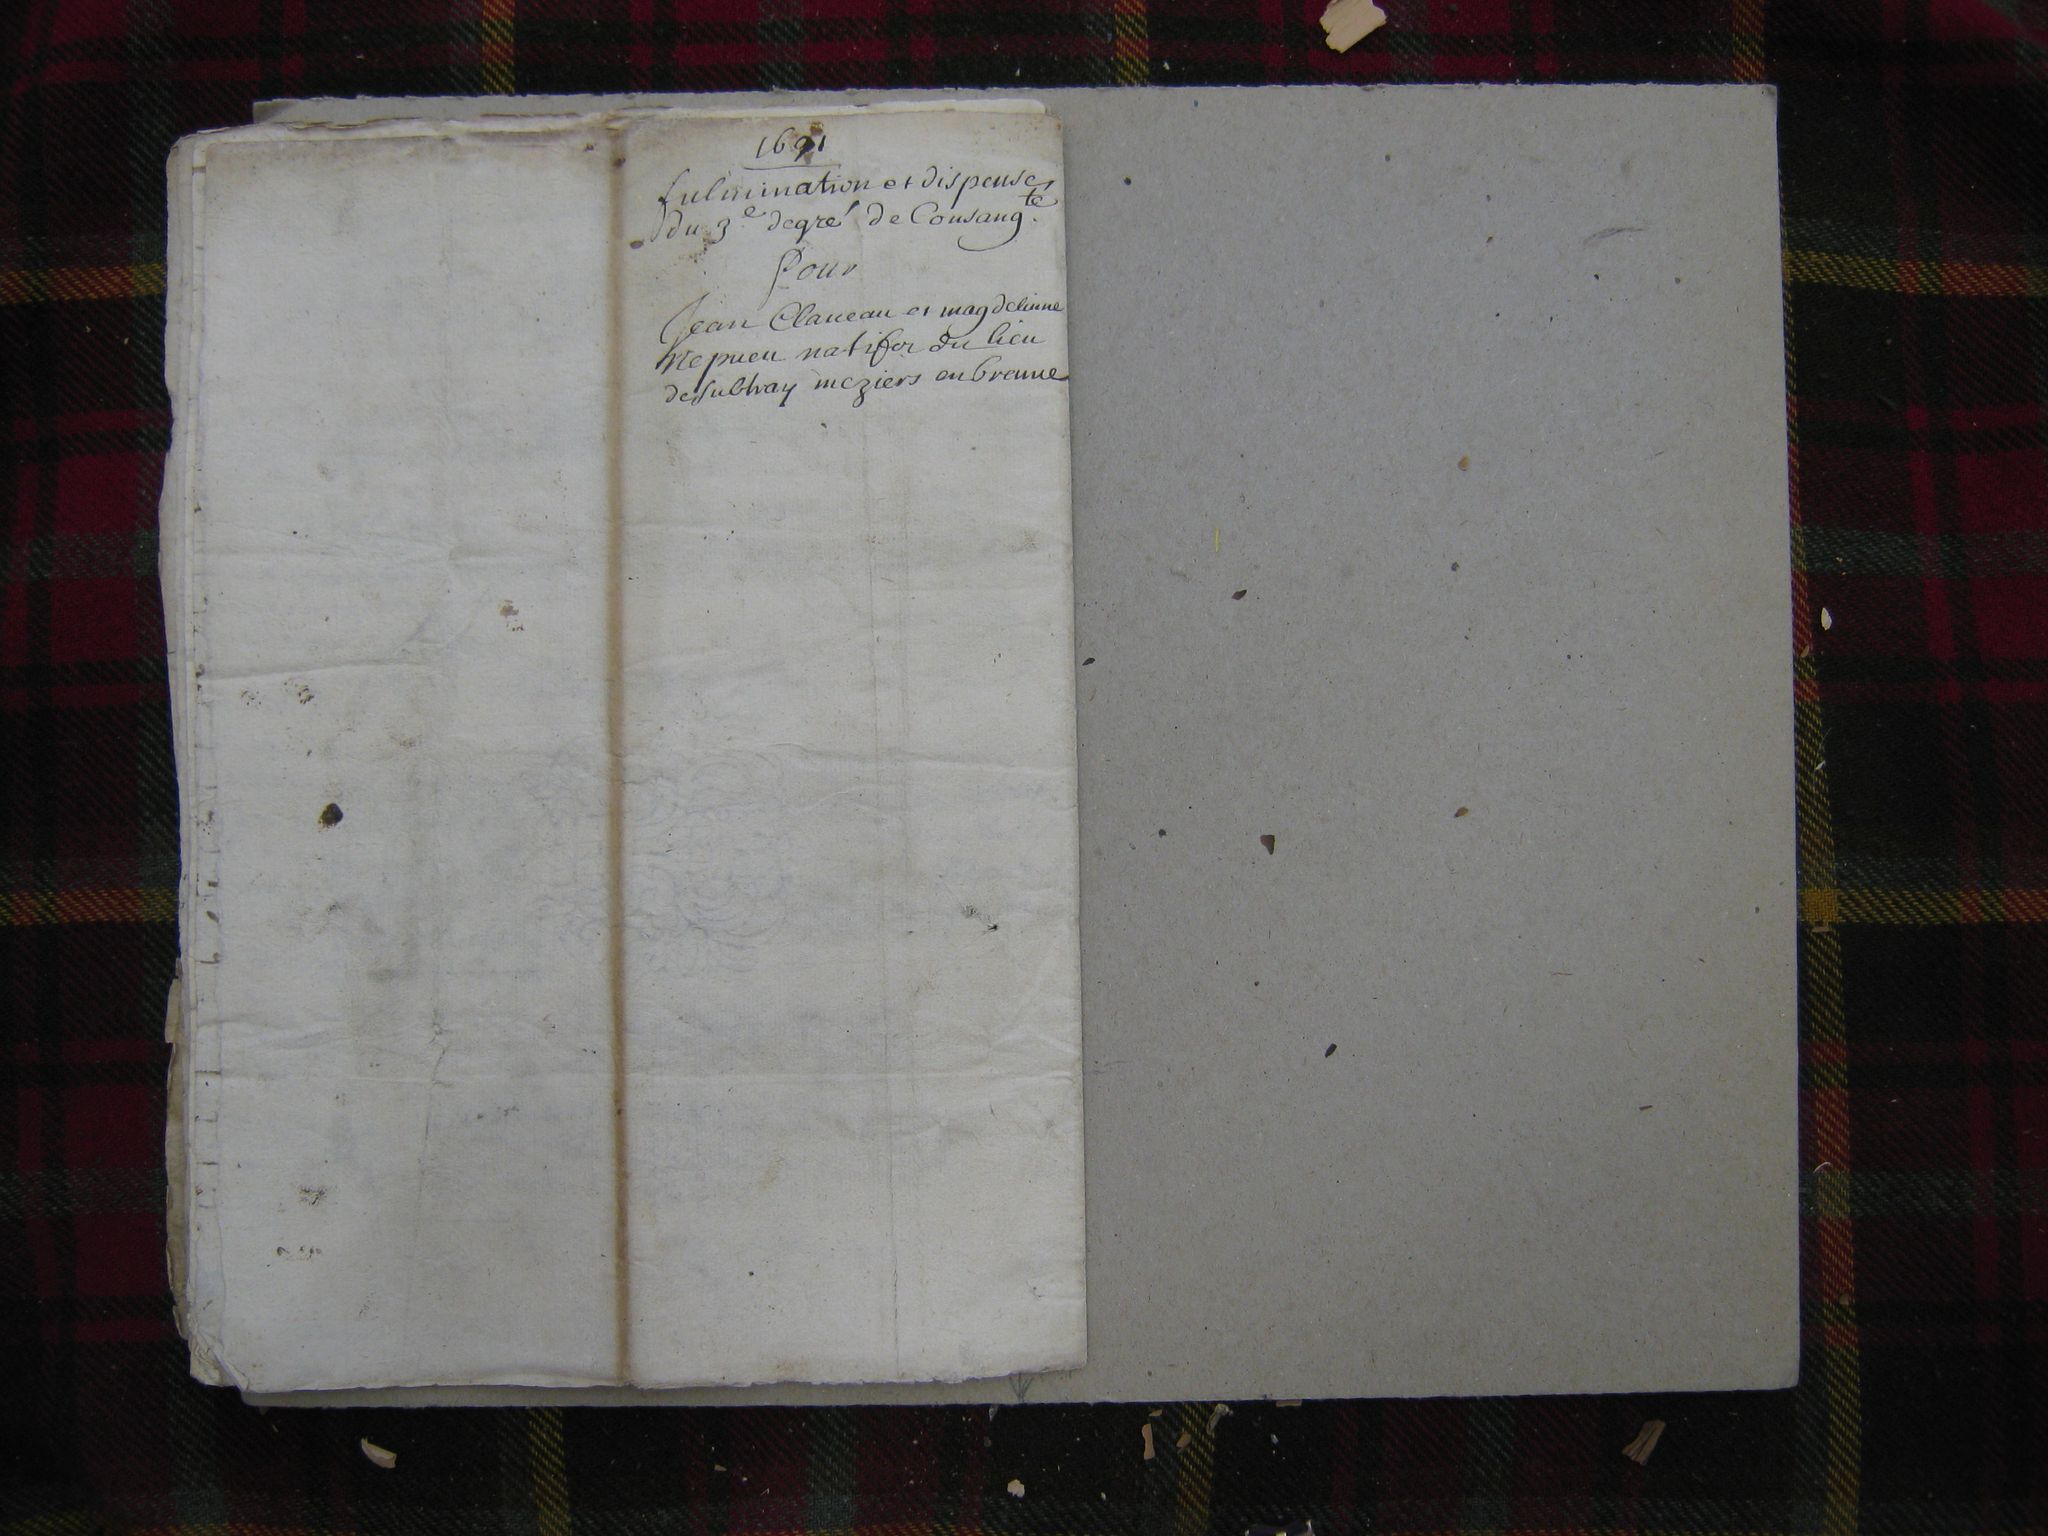 1691
fulmination et dispense
du 3e degré de Consangte.
Pour
Jean Claueau et magdelinne
Nepueu natifs du lieu
de Subtray meziers en brenne